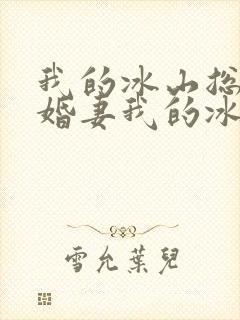 我的冰山总
婚妻我的冰
雪允葉兒